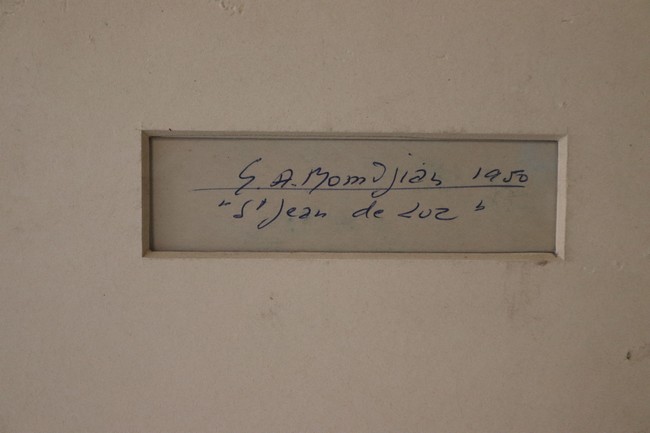 G. A. Momdjian 1950
"St Jean de Luz"